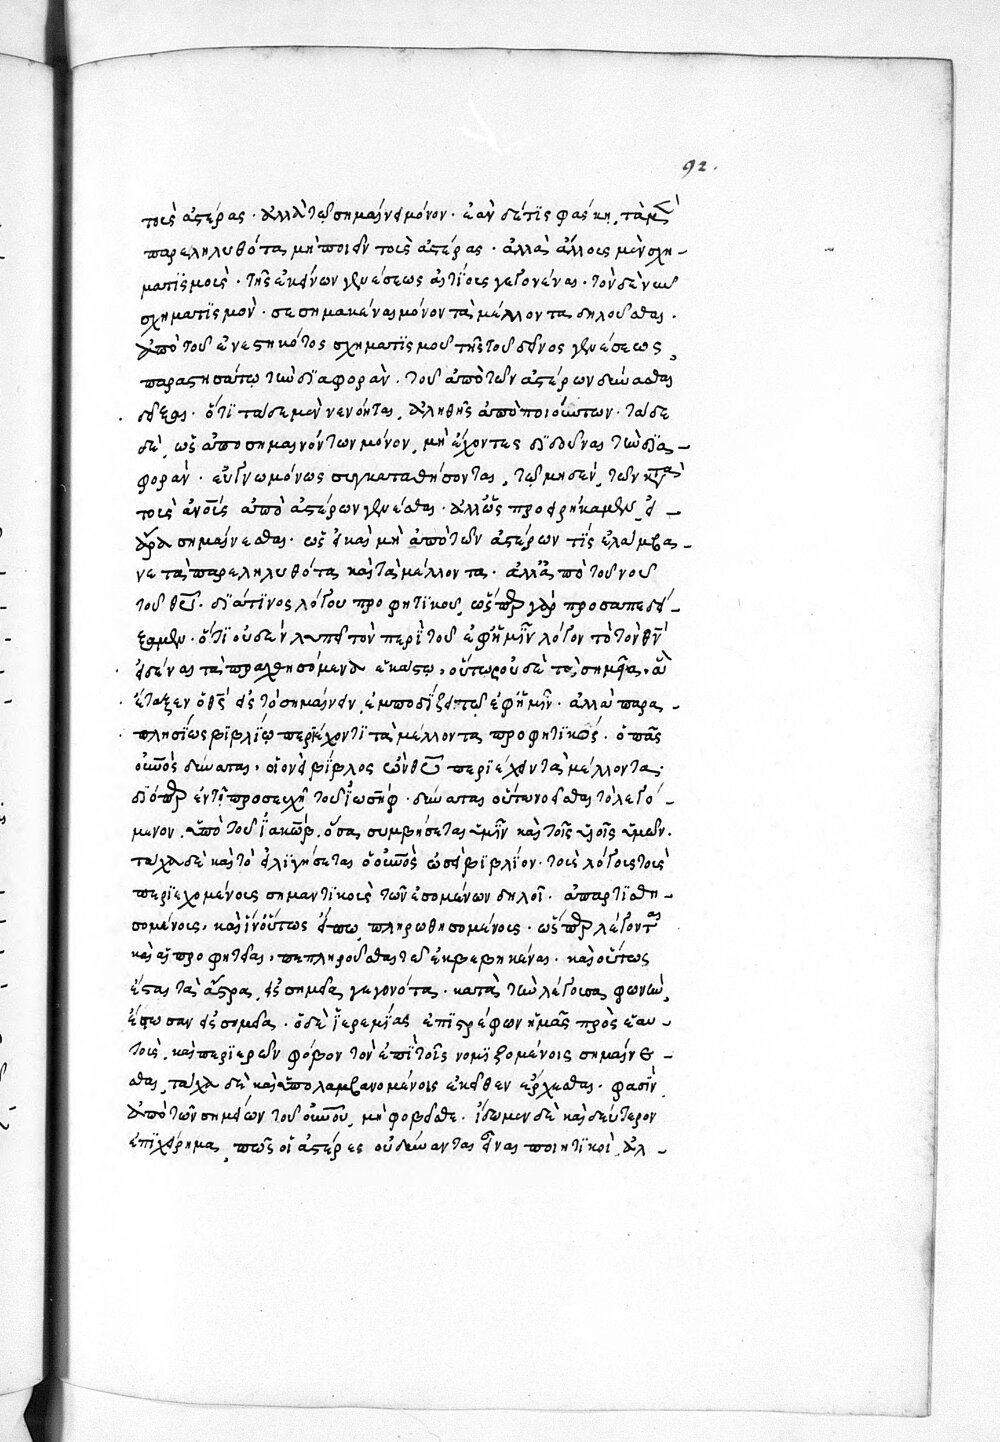 92.
τοὺς ἀστέρας· ἀλλὰ τῷ σημαίνειν μόνον· ἐὰν δέ τις φάσκῃ, τὰ μὲν
παρεληλυθότα μὴ ποιεῖν τοὺς ἀστέρας· ἀλλὰ ἄλλους μὲν σχη-
ματισμοὺς· τῆς ἐκείνων γενέσεως αἰτίους γεγονέναι· τὸν δὲ νῦν
σχηματισμὸν· σεσημακέναι μόνον τὰ μέλλοντα δηλοῦσθαι·
ἀπὸ τοῦ ἐνεστηκότος σχηματισμοῦ τῆς τοῦ δεῖνος γενέσεως,
παραστησάτω τὴν διαφορὰν· τοῦ ἀπὸ τῶν ἀστέρων δύνασθαι
δεῖξαι· ὅτι τάδε μὲν νενόηται, ἀληθῆς ἀπὸ ποιούντων· τάδε
δὲ, ὡς ἀπὸ σημαινόντων μόνον, μὴ ἔχοντες δὲ δοῦναι τὴν δια-
φορὰν· εὐγνωμόνως συγκαταθήσονται, τῷ μηδὲν, τῶν κατὰ
τοὺς ἀνους ἀπὸ ἀστέρων γενέσθαι· ἀλλ' ὡς προειρήκαμεν, εἰ
ἄρα σημαίνεσθαι· ὡς εἰ καὶ μὴ ἀπὸ τῶν ἀστέρων τις ἐλάμβα-
νε τὰ παρεληλυθότα καὶ τὰ μέλλοντα· ἀλλὰ ἀπὸ τοῦ νοῦ
τοῦ θεοῦ· διά τινος λόγου προφητικοῦ, ὥσπερ γὰρ προαπεδεί-
ξαμεν· ὅτι οὐδὲν λυπεῖ τὸν περὶ τοῦ ἐφ' ἡμῖν λόγον τὸ τὸν θν
εἰδέναι τὰ πραχθησόμενα ἑκάστῳ, οὕτως οὐδὲ τὰ σημεῖα, ἃ
ἔταξεν ὁ θς εἰς τὸ σημαίνειν, ἐμποδίζει τῷ ἐφ' ἡμῖν· ἀλλὰ παρα-
πλησίως βιβλίῳ περιέχοντι τὰ μέλλοντα προφητικῶς· ὁ πᾶς
οὐνος δύναται, οἱονεὶ βίβλος ὢν θυ περιέχειν τὰ μέλλοντα·
διόπερ ἐν τῇ προσευχῇ τοῦ ἰωσὴφ· δύναται οὕτω νοεῖσθαι τὸ λεγό-
μενον, ὑπὸ τοῦ ἰακὼβ, ὅσα συμβήσεται ὑμῖν καὶ τοῖς υἱοῖς ὑμῶν.
τάχα δὲ καὶ τὸ ἑλιγήσεται ὁ οὐνος ὡσεὶ βιβλίον· τοὺς λόγους τοὺς
περιεχομένους σημαντικοὺς τῶν ἐσομένων δηλοῖ· ἀπαρτισθη-
σομένους, καὶ ἵν' οὕτως εἴπω, πληρωθησομένους· ὥσπερ λέγονται
καὶ αἱ προφητεῖαι, πεπληροῦσθαι τῷ ἐκβεβηκέναι· καὶ οὕτως
ἔσται τὰ ἄστρα, εἰς σημεῖα, γεγονότα· κατὰ τὴν λέγουσαν φωνὴν,
ἔστωσαν εἰς σημεῖα· ὁ δὲ ἱερεμίας ἐπιστρέφων ἡμᾶς πρὸς ἑαυ-
τοὺς, καὶ περιαιρῶν φόβον τὸν ἐπὶ τοῖς νομιζομένοις σημαίνε-
σθαι, τάχα δὲ καὶ ὑπολαμβανομένοις ἐκεῖθεν ἔρχεσθαι· φασὶν,
ἀπὸ τῶν σημείων τοῦ οὐνου, μὴ φοβεῖσθε· ἴδωμεν δὲ καὶ δεύτερον
ἐπιχείρημα, πῶς οἱ ἀστέρες οὐ δύνανται εἶναι ποιητικοὶ, ἀλ-